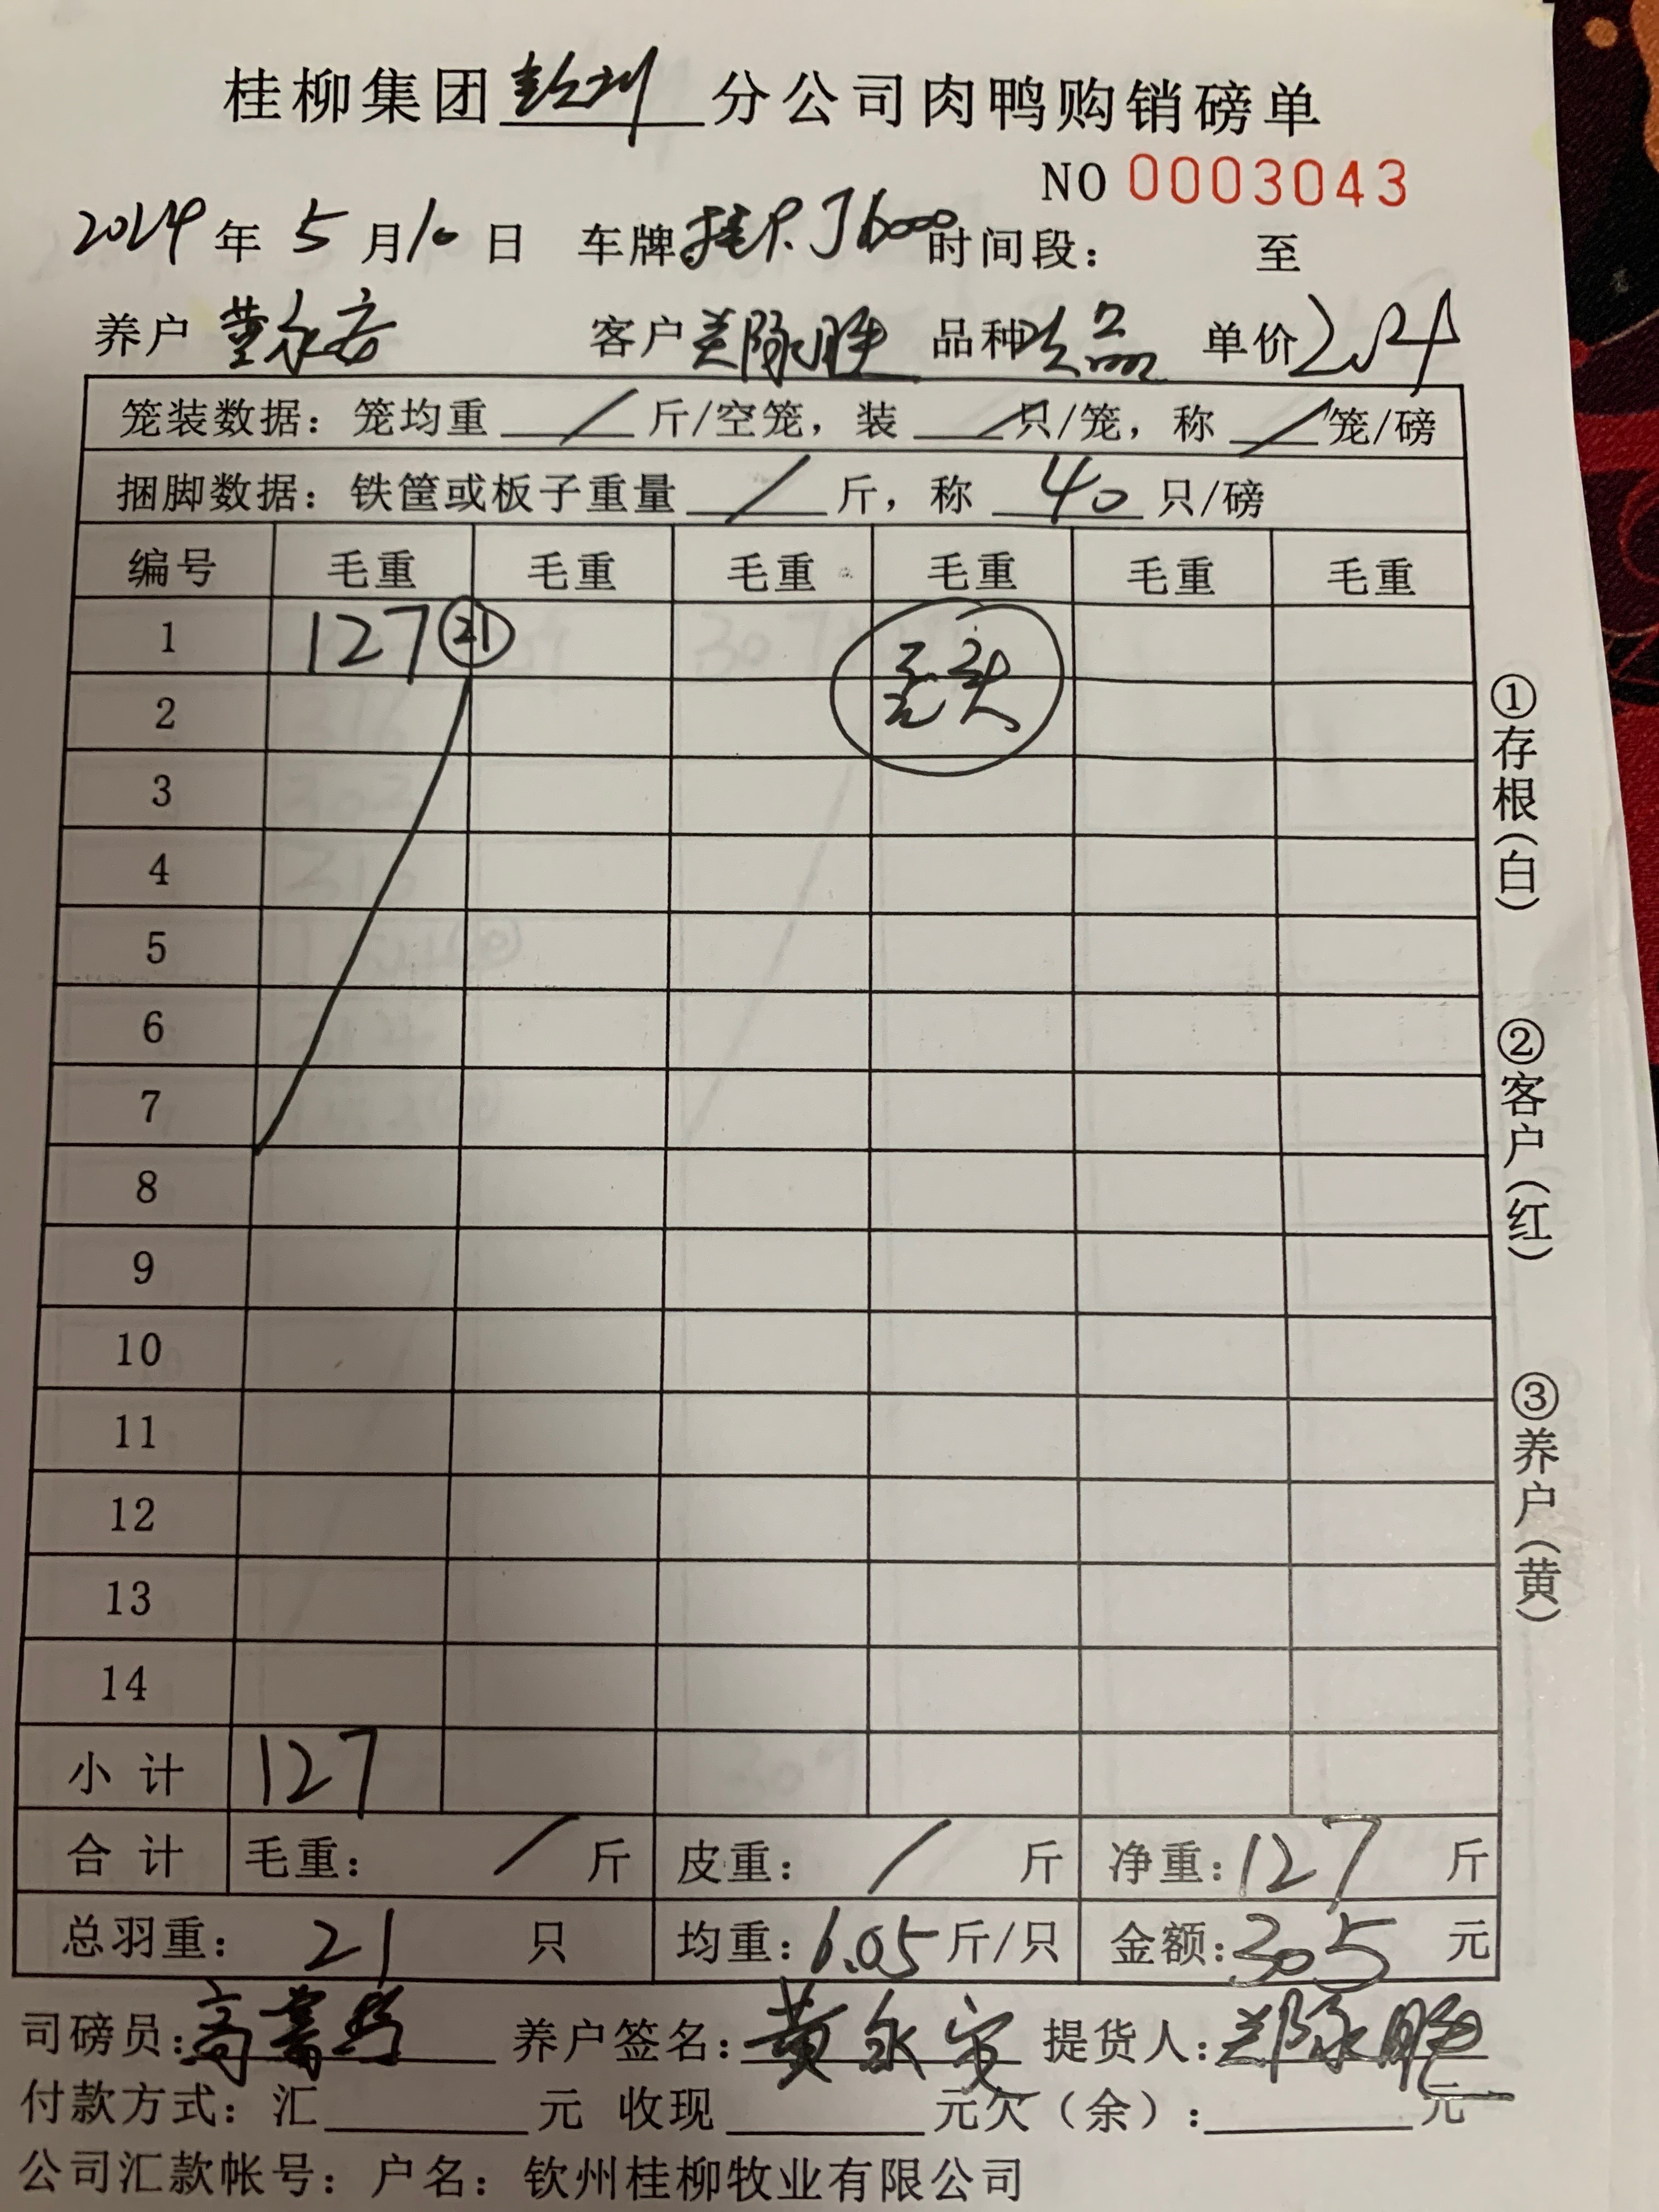 桂柳集团 分公司肉鸭购销磅单
NO 0003043
2024年5月10日 车牌 J6000 时间段： 至
养户 黄永安 客户 郑永胜 品种 单价2.4
笼装数据：笼均重 / 斤/空笼，装 / 只/笼，称 / 笼/磅
捆脚数据：铁筐或板子重量 / 斤，称 40 只/磅
编号 毛重 毛重 毛重 毛重 毛重 毛重
1 127 21
2
3
4
5
6
7
8
9
10
11
12
13
14
小计 127
合计 毛重： / 斤 皮重： / 斤 净重：127 斤
总羽重： 21 只 均重：6.05斤/只 金额：305 元
司磅员： 养户签名：黄永安 提货人：郑永胜
付款方式：汇 元 收现 元欠（余）： 元
公司汇款帐号：户名：钦州桂柳牧业有限公司
①存根（白）
②客户（红）
③养户（黄）